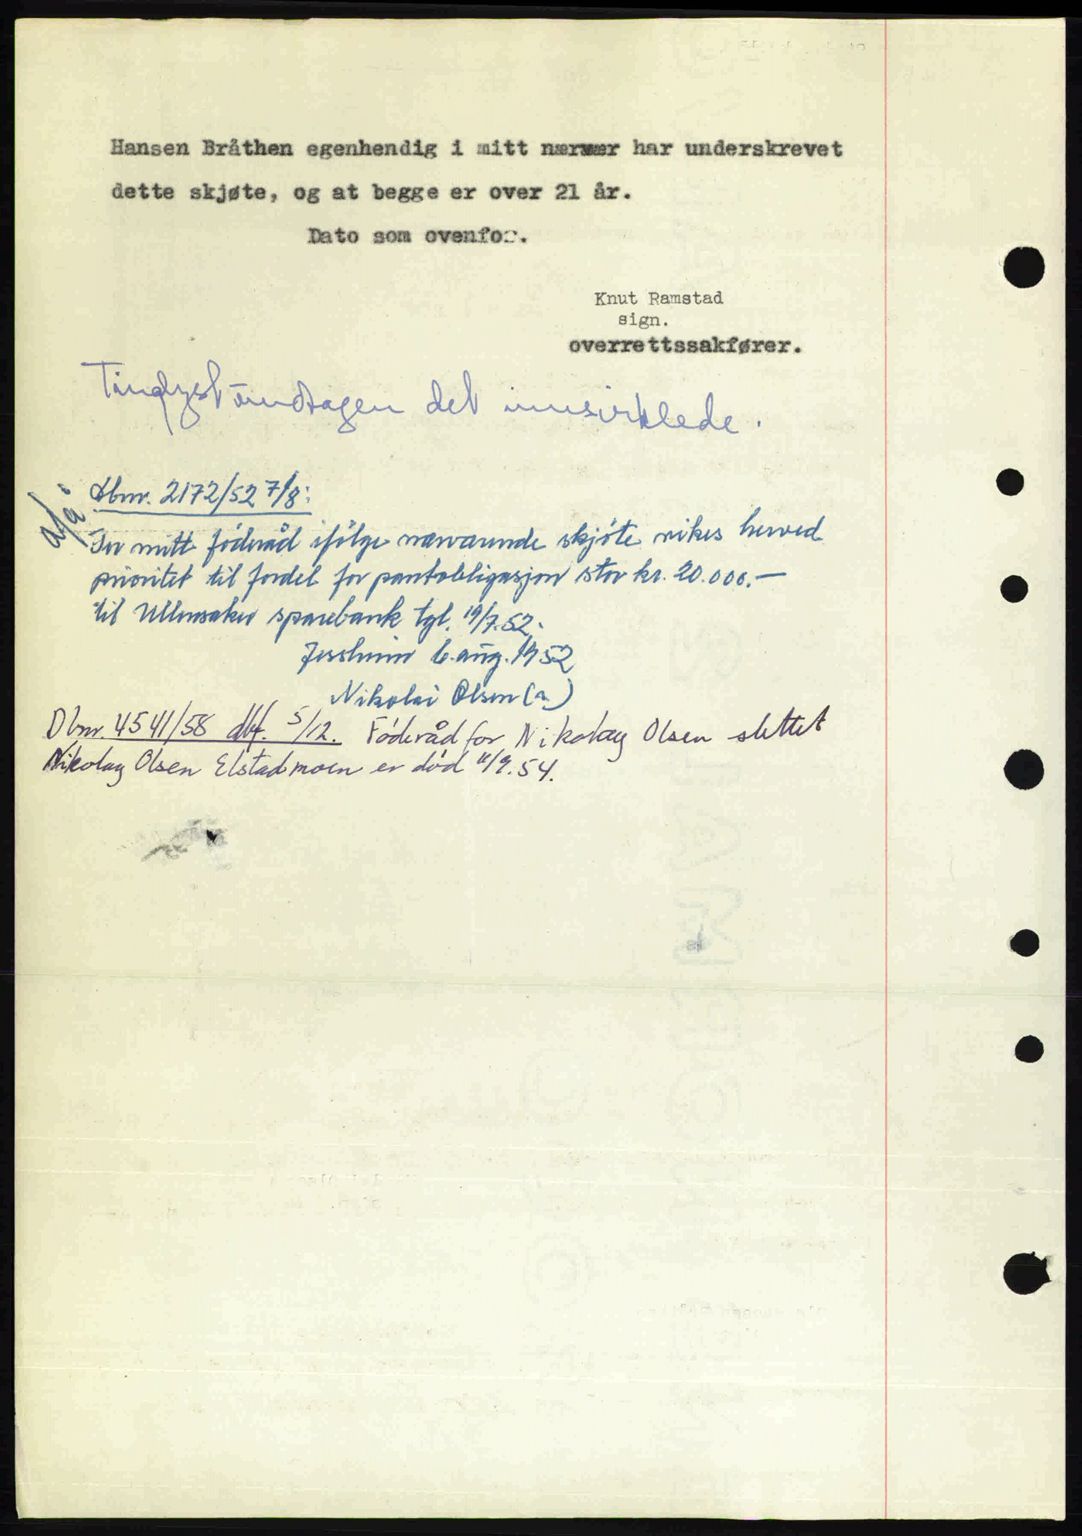 Hansen Bråthen egenhendig i mitt nærvær har underskrevet
dette skjøte, og at begge er over 21 år.
Dato som ovenfor.
Knut Ramstad
sign.
overrettssakfører.
Tinglyst undtagen det innsirklede.
Dbnr. 2172/52 7/8:
For mitt föderåd ifölge nærværende skjöte vikes herved
prioritet til fordel for pantobligasjon stor kr. 20.000.—
til Ullensaker sparebank tgl. 19/7.52.
Jessheim 6. aug. 1952
Nikolai Olsen (s.)
Dbnr. 4541/58 dbf. 5/12. Föderåd for Nikolay Olsen slettet
Nikolay Olsen Elstadmoen er död 11/9.54.